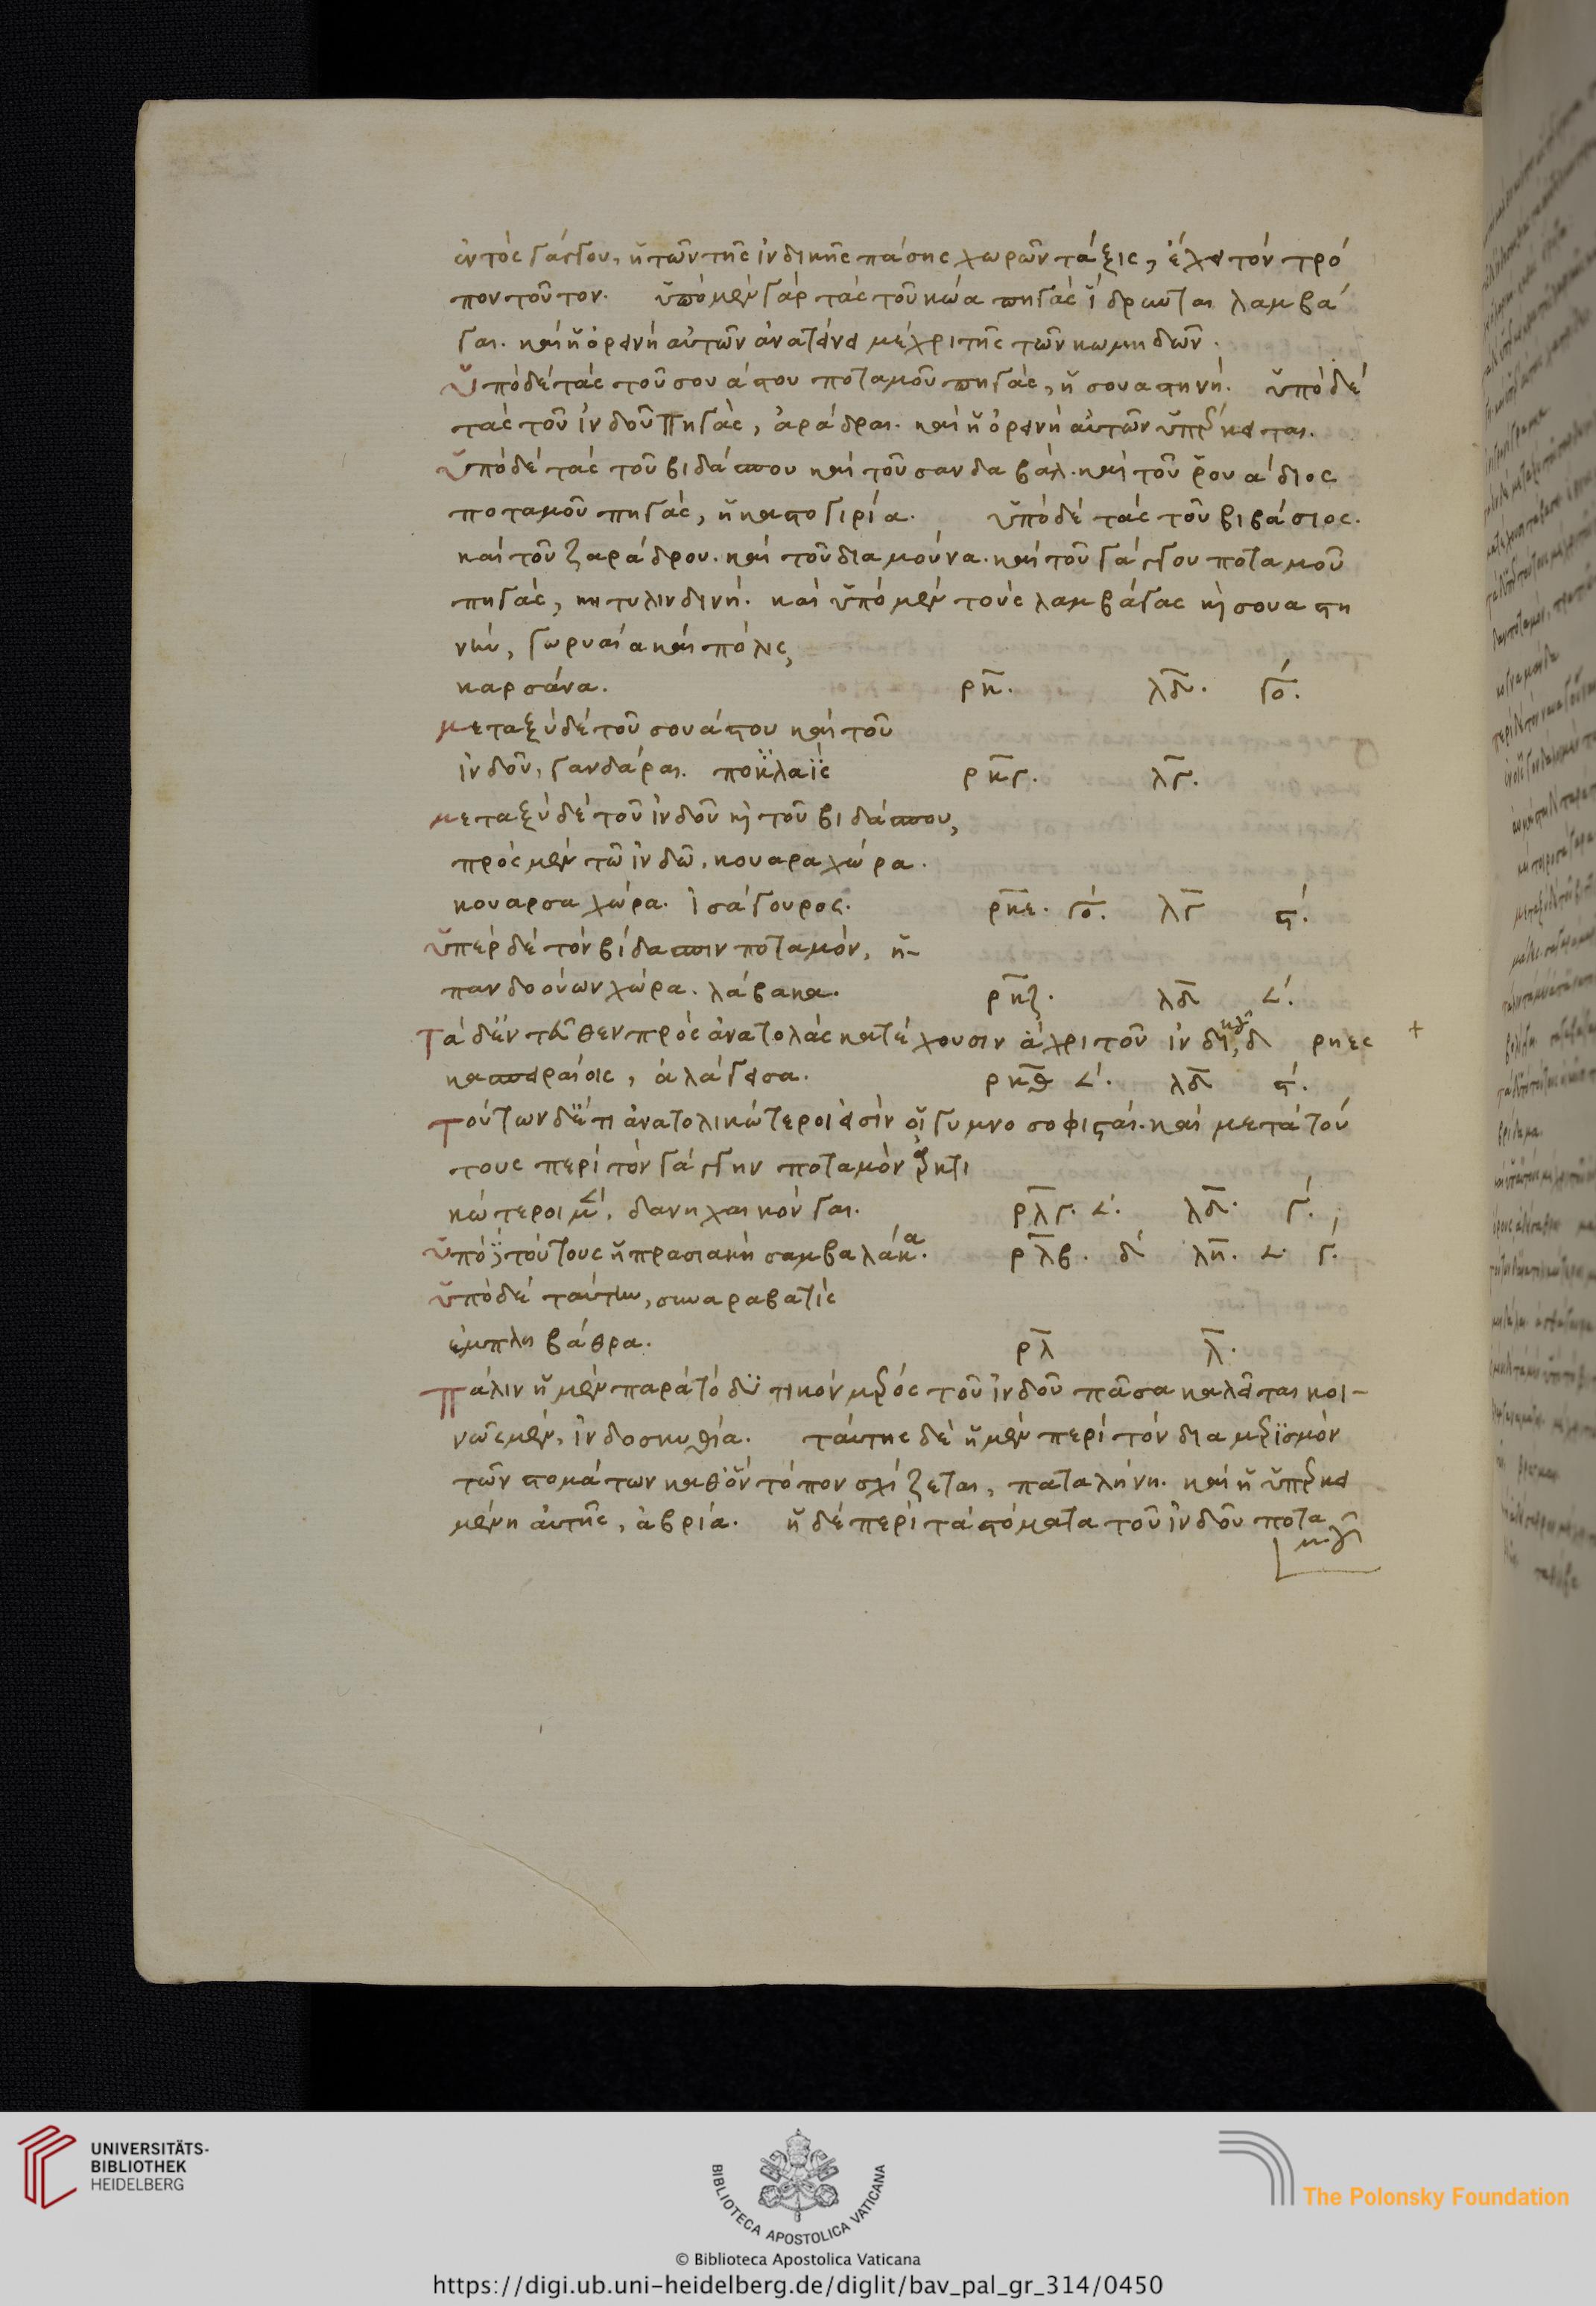 ἐντὸς γάγγου, ἡ τῶν τῆς ἰνδικῆς πάσης χωρῶν τάξις, ἔχει τὸν τρό
πον τοῦτον. ὑπὸ μὲν γὰρ τὰς τοῦ κώα πηγὰς ἵδρυνται λαμβά
γαι. καὶ ἡ ὀρεινὴ αὐτῶν ἀνατείνει μέχρι τῆς τῶν κωμηδῶν.
ὑπὸ δὲ τὰς τοῦ σουάστου ποταμοῦ πηγὰς, ἡ σουαστηνή. ὑπὸ δὲ
τὰς τοῦ ἰνδοῦ πηγὰς, ἀράδραι. καὶ ἡ ὀρεινὴ αὐτῶν ὑπέρκειται.
ὑπὸ δὲ τὰς τοῦ βιδάσπου καὶ τοῦ σανδαβάλ. καὶ τοῦ ῥουάδιος
ποταμοῦ πηγὰς, ἡ καστογιρία. ὑπὸ δὲ τὰς τοῦ βιβάσιος.
καὶ τοῦ ζαράδρου. καὶ τοῦ διαμούνα. καὶ τοῦ γάγγου ποταμοῦ
πηγὰς, κητυλινδινή. καὶ ὑπὸ μὲν τοὺς λαμβάγας κὶ σουαστη
νὴν, γωρυαία καὶ πόλις,
καρσάνα. ρκη. λδ. γο.
μεταξὺ δὲ τοῦ σουάστου καὶ τοῦ
ἰνδοῦ, γανδάραι. ποκλαΐς ρκγ. λγ.
μεταξὺ δὲ τοῦ ἰνδοῦ κὶ τοῦ βιδάσπου,
πρὸς μὲν τῶ ἰνδῶ, κουαρα χώρα.
κουαρσα χώρα. ἰσάγουρος. ρκε. γο. λγ ς.
ὑπὲρ δὲ τὸν βίδασπιν ποταμὸν, ἡ
πανδοούων χώρα. λάβακα. ρκζ. λδ 𐅵.
τὰ δ' ἐντεῦθεν πρὸς ἀνατολὰς κατέχουσιν ἄχρι τοῦ
κασπειραίοις, ἀλάγεισα. ρκθ 𐅵. λδ ς.
τούτων δ' ἔτι ἀνατολικώτεροι εἰσὶν οἱ γυμνοσοφισταί. καὶ μετὰ τού
τους περὶ τὸν γάγγην ποταμὸν ἀρκτι
κώτεροι μ, δανηχαι κόνγαι. ρλγ. 𐅵. λδ. γ.
ὑπὸ τούτους ἡ πρασιακὴ σαμβαλάκα. ρλβ. δ λη. 𐅵 γ.
ὑπὸ δὲ ταύτην, σιναραβατίς
ἐμπληβάθρα. ρλ λ.
πάλιν ἡ μὲν παρὰ τὸ δυτικὸν μέρος τοῦ ἰνδοῦ πᾶσα καλεῖται κοι
νῶς μὲν, ἰνδοσκυθία. ταύτης δὲ ἡ μὲν περὶ τὸν διαμερισμὸν
τῶν στομάτων καθ' ὃν τόπον σχίζεται, παταλήνη. καὶ ἡ ὑπερκει
μένη αὐτῆς, ἀβρία. ἡ δὲ περὶ τὰ στόματα τοῦ ἰνδοῦ ποτα
μοῦ
UNIVERSITÄTS-
BIBLIOTHEK
HEIDELBERG
BIBLIOTECA APOSTOLICA VATICANA
The Polonsky Foundation
© Biblioteca Apostolica Vaticana
https://digi.ub.uni-heidelberg.de/diglit/bav_pal_gr_314/0450